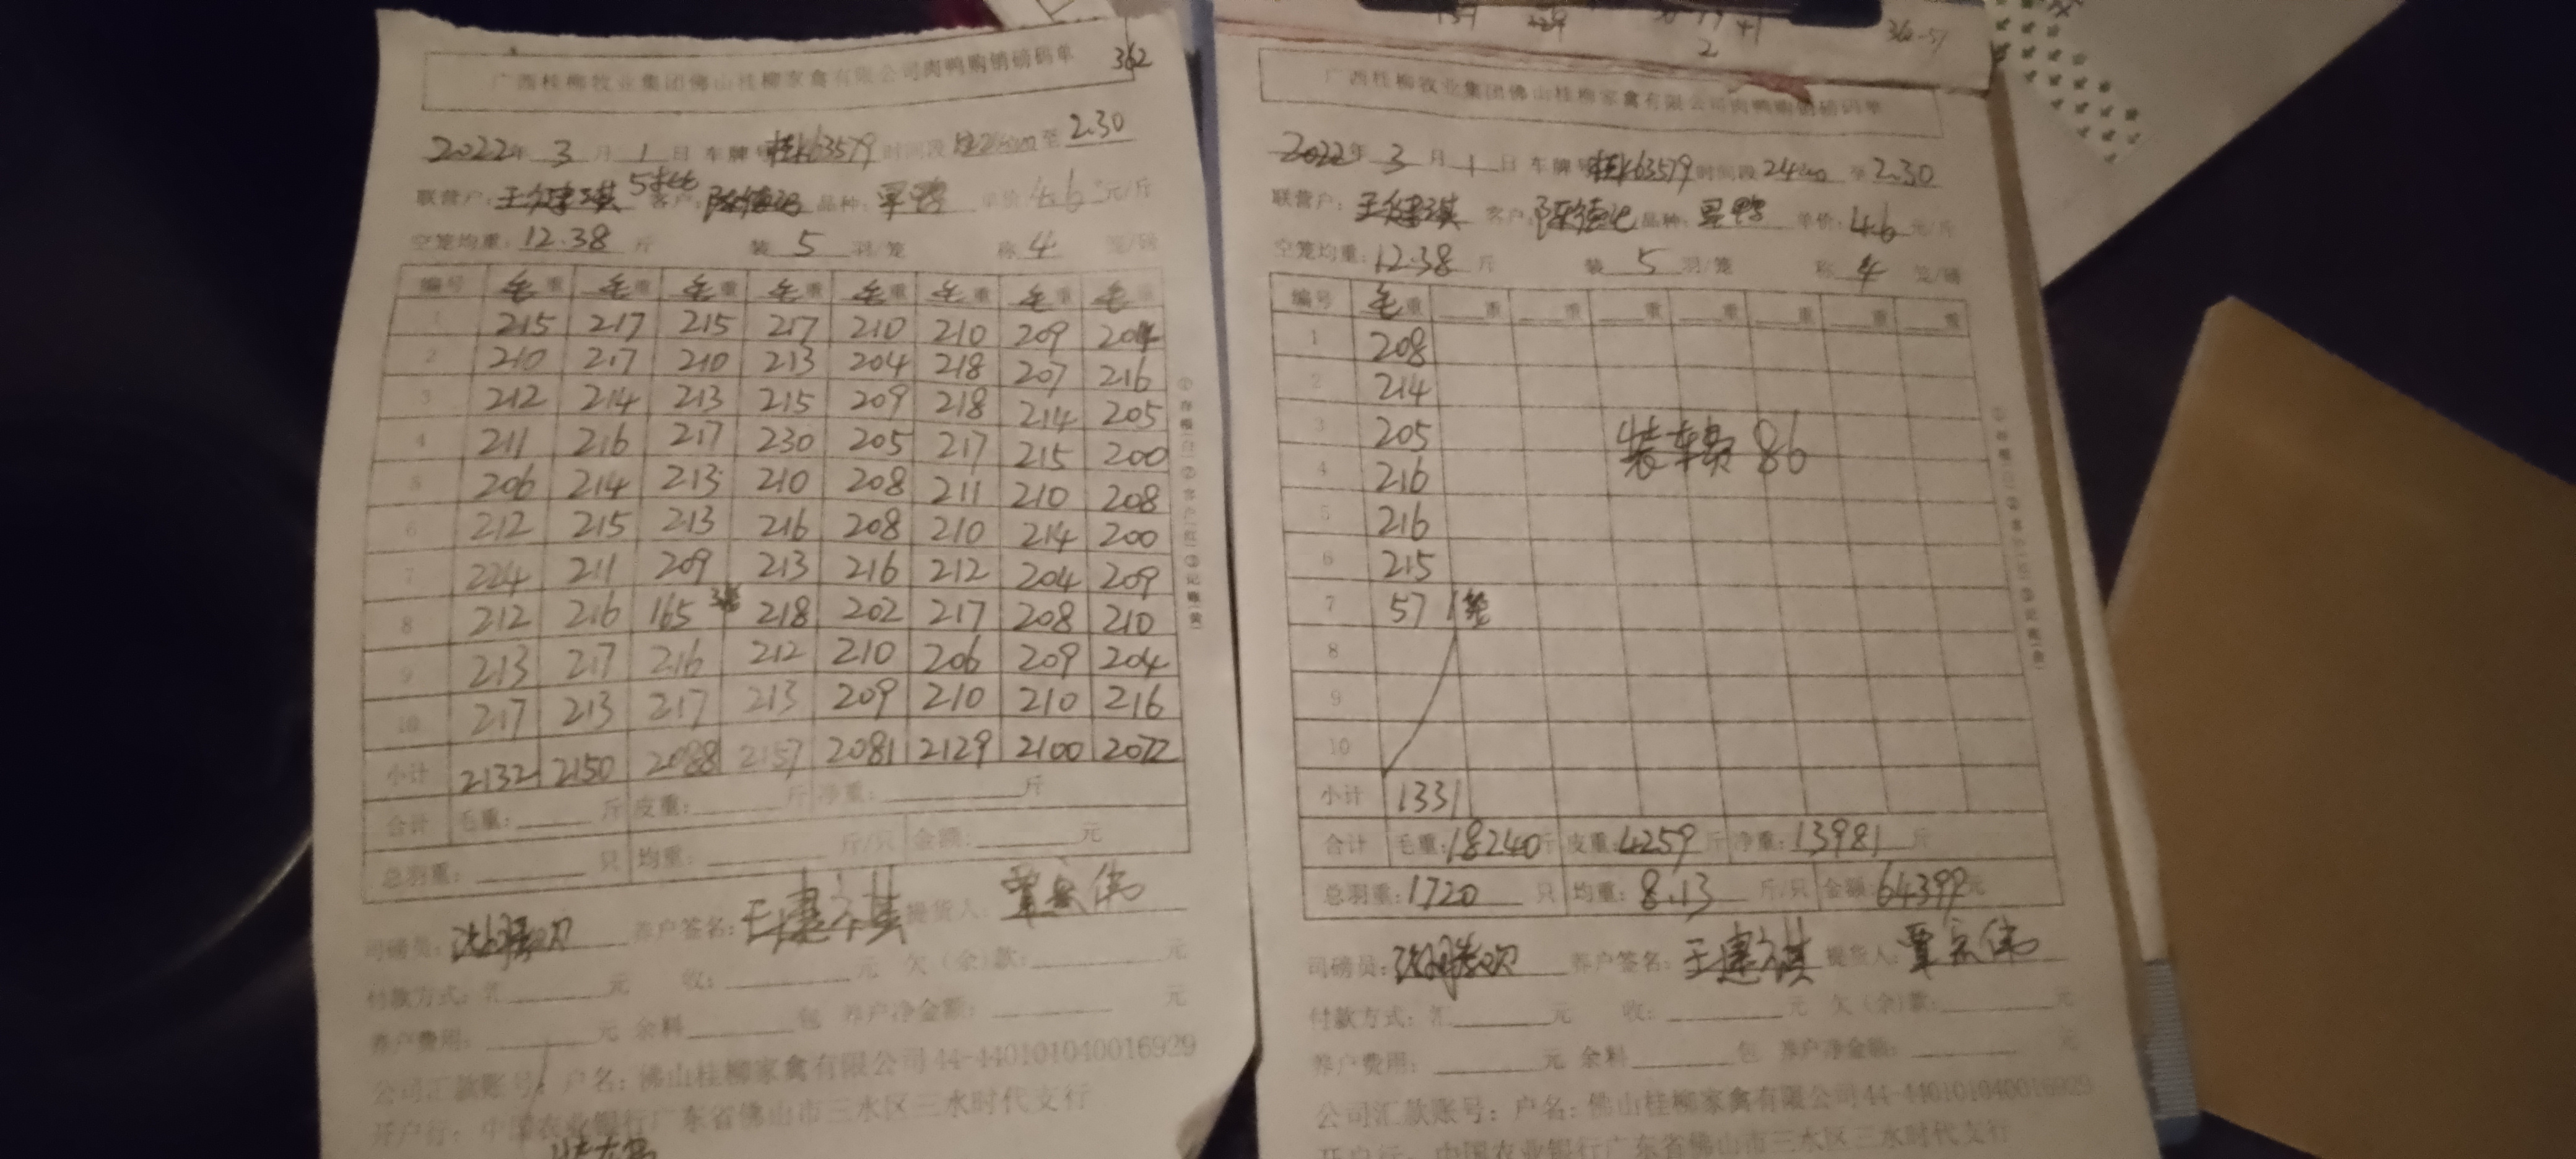 362
广西桂柳牧业集团佛山桂柳家禽有限公司肉鸭购销磅码单
2022年 3 月 1 日 车牌号 63579 时间段 至 2.30
联营户: 客户: 品种: 单价 4.6 元/斤
空笼均重: 12.38 斤 装 5 羽/笼 称 4 笼/磅
编号 毛重 毛重 毛重 毛重 毛重 毛重 毛重 毛重
1 215 217 215 217 210 210 209 204
2 210 217 210 213 204 218 207 216
3 212 214 213 215 209 218 214 205
4 211 216 217 230 205 217 215 200
5 206 214 213 210 208 211 210 208
6 212 215 213 216 208 210 214 200
7 224 211 209 213 216 212 204 209
8 212 216 165 3笼 218 202 217 208 210
9 213 217 216 212 210 206 209 204
10 217 213 217 213 209 210 210 216
小计 2132 2150 2088 2157 2081 2129 2100 2072
合计 毛重: 斤 皮重: 斤 净重: 斤
总羽重: 只 均重: 斤/只 金额: 元
司磅员: 养户签名: 王 提货人: 覃
付款方式: 元 收: 元 欠(余)款: 元
养户费用: 元 余料 包 养户净金额: 元
公司汇款账号: 户名: 佛山桂柳家禽有限公司 44-440101040016929
开户行: 中国农业银行广东省佛山市三水区三水时代支行
①存根(白) ②客户(红) ③记账(黄)
36-57
2
广西桂柳牧业集团佛山桂柳家禽有限公司肉鸭购销磅码单
2022年 3 月 1 日 车牌号 63579 时间段 至 2.30
联营户: 客户: 品种: 单价: 4.6 元/斤
空笼均重: 12.38 斤 装 5 羽/笼 称 4 笼/磅
编号 毛重 重 重 重 重 重 重 重
1 208
2 214
3 205
4 216
5 216
6 215
7 57 1笼
8
9
10
装车费 86
小计 1331
合计 毛重: 18240斤 皮重: 4259 斤 净重: 13981 斤
总羽重: 1720 只 均重: 8.13 斤/只 金额: 64399元
司磅员: 养户签名: 王 提货人: 覃
付款方式: 元 收: 元 欠(余)款: 元
养户费用: 元 余料 包 养户净金额: 元
公司汇款账号: 户名: 佛山桂柳家禽有限公司 44-440101040016929
开户行: 中国农业银行广东省佛山市三水区三水时代支行